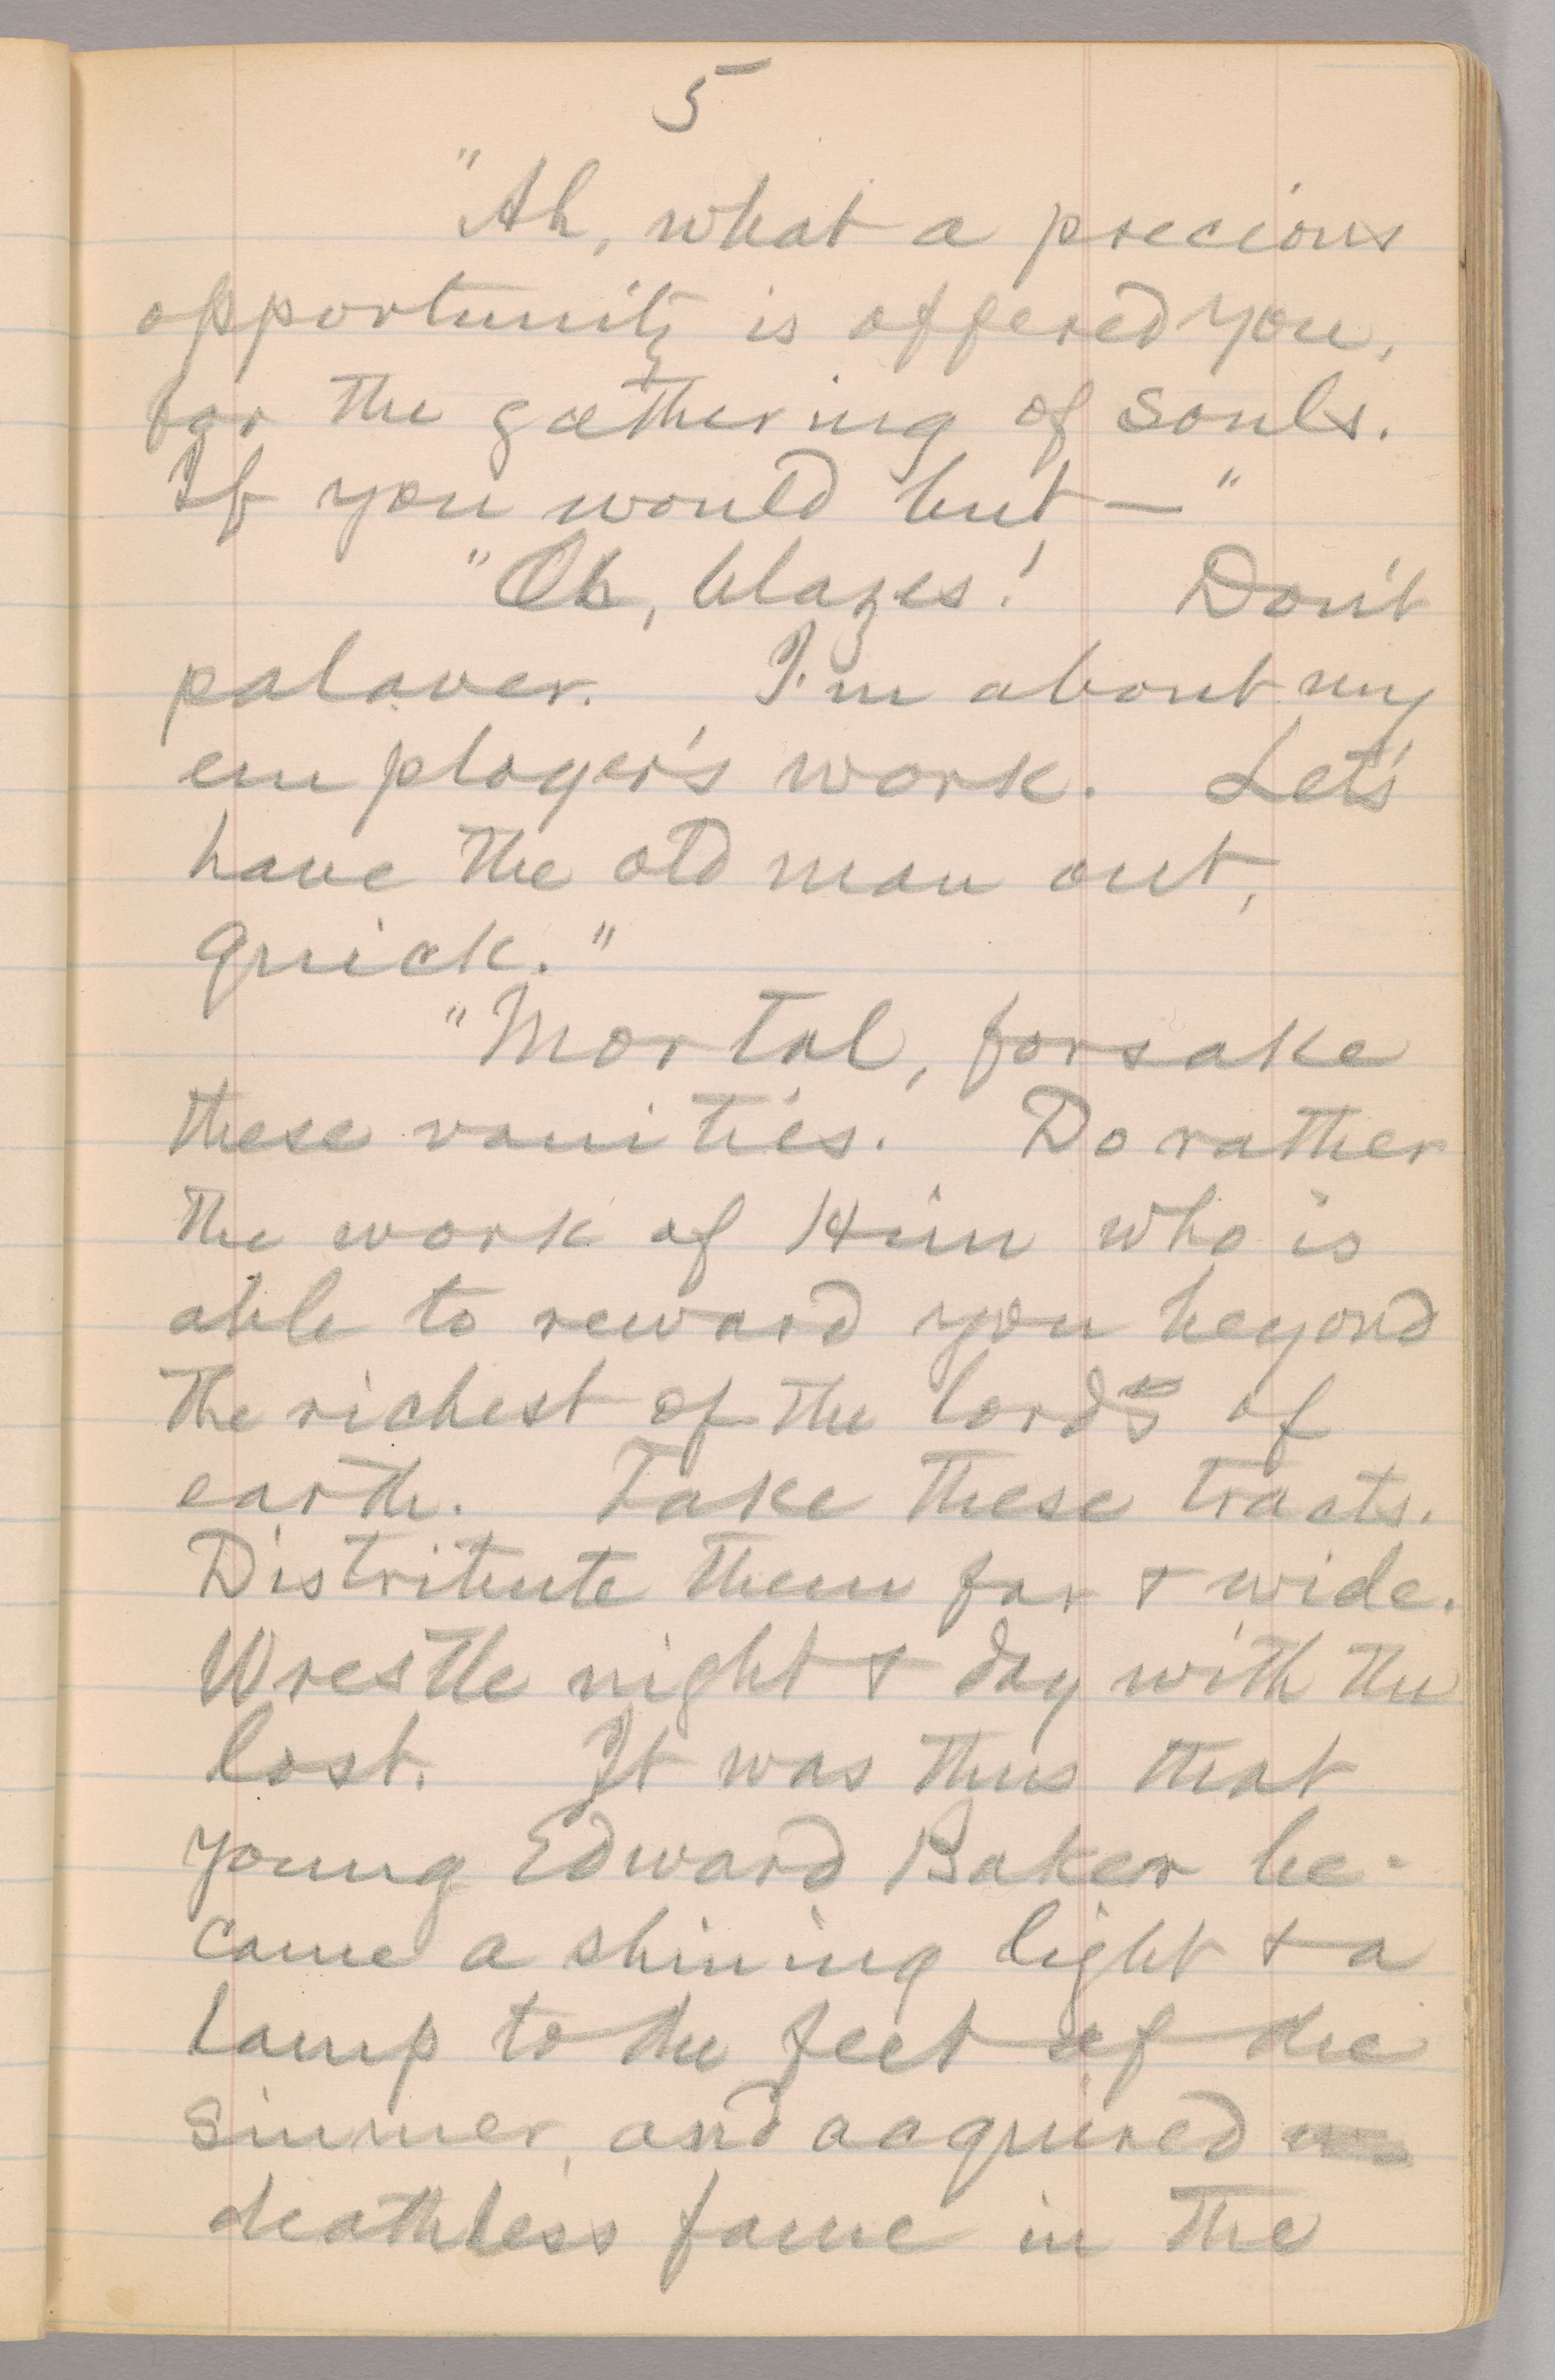 5
"Ah, what a precious
opportunity is offered you,
for the gathering of souls.
If you would but—"
"Oh, blazes! Don't
palaver. I'm about my
employer's work. Let's
have the old man out,
quick."
"Mortal, forsake
these vanities. Do rather
the work of Him who is
able to reward you beyond
the richest of the lords of
earth. Take these tracts.
Distribute them far & wide.
Wrestle night & day with the
lost. It was thus that
young Edward Baker be-
came a shining light & a
lamp to the feet of the
sinner, and acquired
deathless fame in the